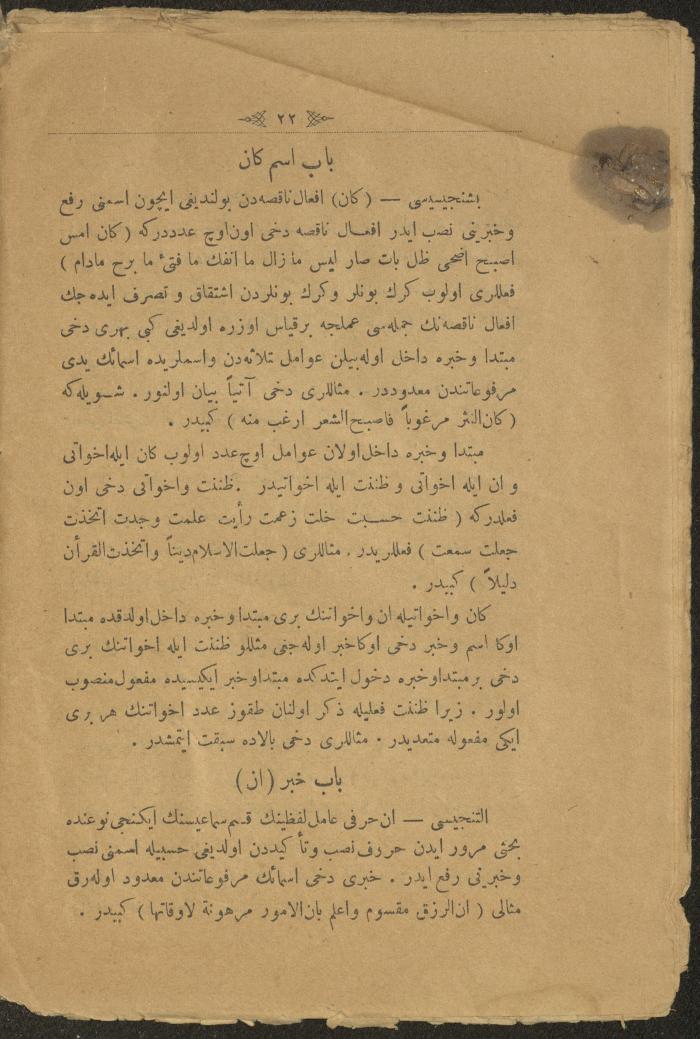 ٢٢
باب اسم كان
بشنجيسى — (كان) افعال ناقصه‌دن بولنديغى ايچون اسمنى رفع
وخبرينى نصب ايدر افعـال ناقصه دخى اون‌اوچ عدددركه (كان امس
اصبح اضحى ظل بات صار ليس ما زال ما انفك ما فتئ ما برح مادام)
فعللرى اولوب كرك بونلر وكرك بونلردن اشتقاق و تصرف ايده‌جك
افعال ناقصه‌نك جمله‌سى عملجه برقياس اوزره اولديغى كبى بهرى دخى
مبتدا وخبره داخل اوله‌بيلن عوامل ثلاثه‌دن واسملريده اسمائك يدى
مرفوعاتندن معدوددر . مثاللرى دخى آتياً بيان اولنور . شـويله‌كه
(كان‌النثر مرغوباً فاصبح‌الشعر ارغب منه) كبيدر .
مبتدا وخبره داخل‌اولان عوامل اوچ‌عدد اولوب كان ايله‌اخواتى
و ان ايله اخواتى و ظننت ايله اخواتيدر . ظننت واخواتى دخى اون
فعلدركه (ظننت حسـبت خلت زعمت رأيت علمت وجدت اتخذت
جعلت سمعت) فعللريدر . مثاللرى (جعلت‌الاسلام‌ديناً واتخذت‌القرأن
دليلاً) كبيدر .
كان واخواتيله ان واخواتنك برى مبتدا وخبره داخل‌اولدقده مبتدا
اوكا اسم وخبر دخى اوكاخبر اوله‌جغى مثللو ظننت ايله اخواتنك برى
دخى برمبتداوخبره دخول ايتدكده مبتداوخبر ايكيسيده مفعول‌منصوب
اولور . زيرا ظننت فعليله ذكر اولنان طقوز عدد اخواتنك هر برى
ايكى مفعوله متعديدر . مثاللرى دخى بالاده سبقت ايتمشدر .
باب خبر (ان)
التنجيسى — ان‌حرفى عامل‌لفظينك قسم‌سماعيسنك ايكنجى‌نوعنده
بحثى مرور ايدن حررف نصب وتأكيددن اولديغى حسبيله اسمنى نصب
وخبرينى رفع ايدر . خبرى دخى اسمائك مرفوعاتندن معدود اوله‌رق
مثالى (ان‌الرزق مقسوم واعلم بان‌الامور مرهونة لاوقاتها) كبيدر .